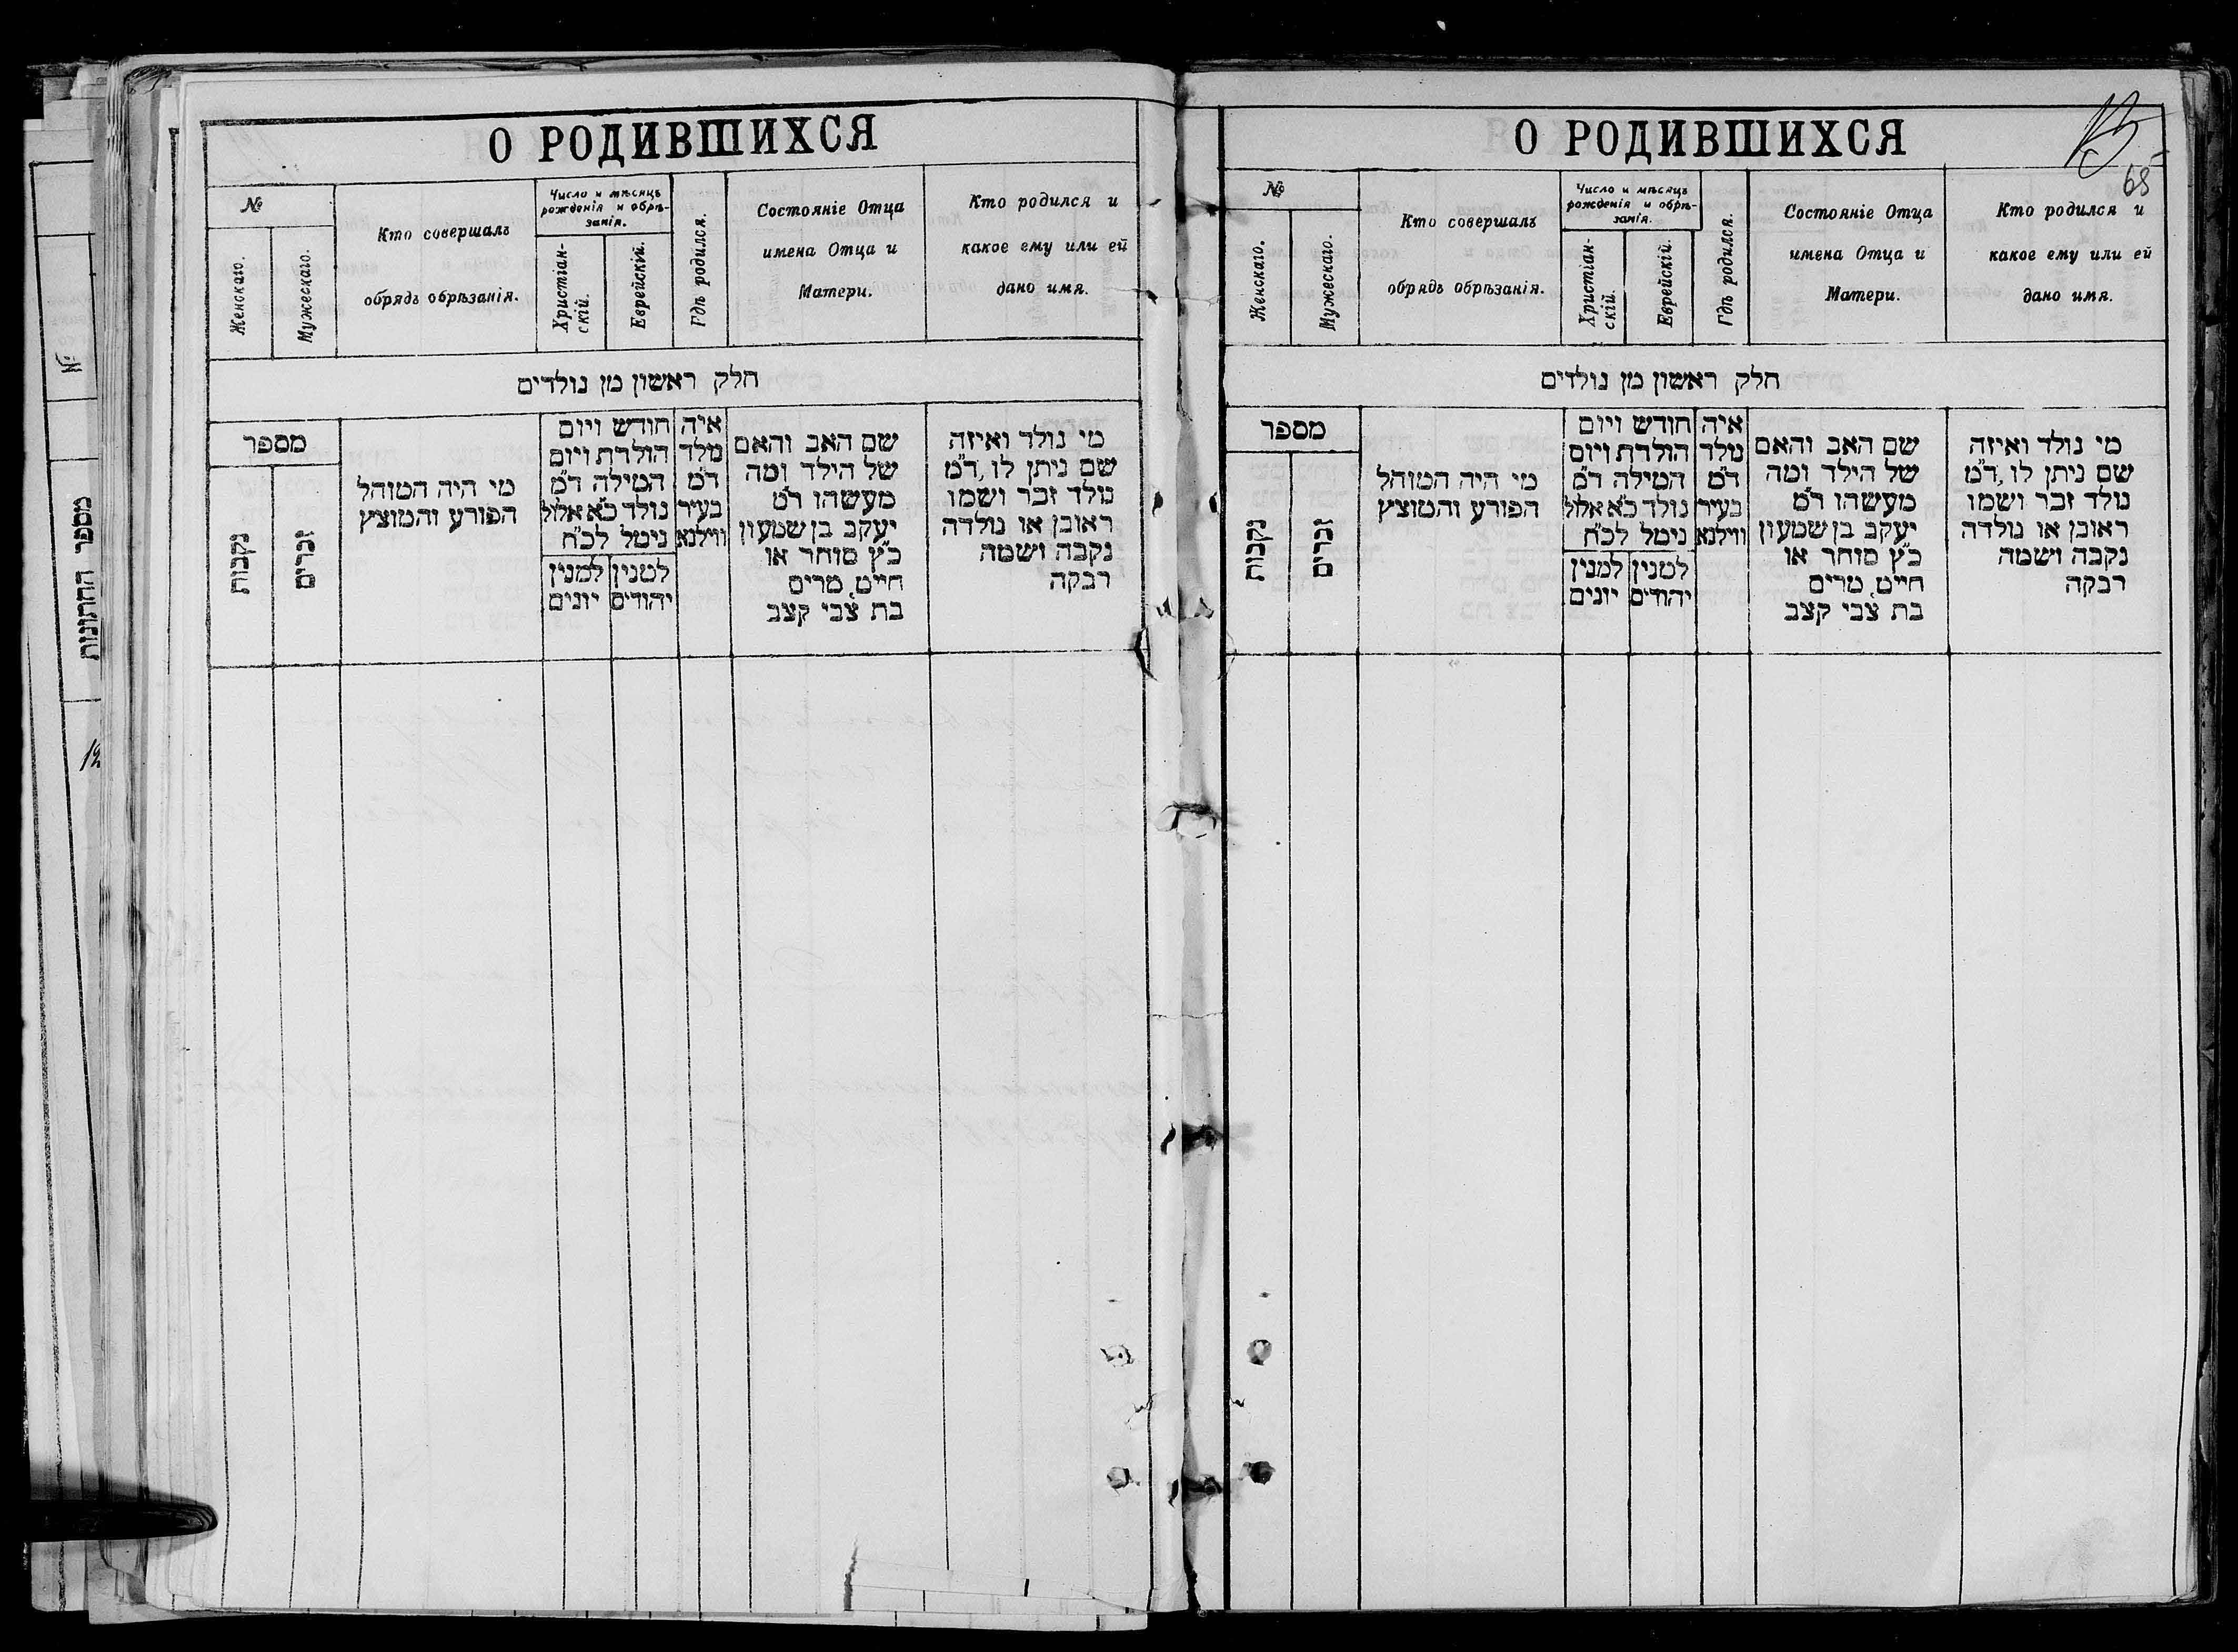 О РОДИВШИХСЯ
№
Женскаго.
Мужескаго.
Кто совершалъ
обрядъ обрѣзанія.
Число и мѣсяцъ
рожденія и обрѣ-
занія.
Христіан-
скій.
Еврейскій.
Гдѣ родился.
Состояніе Отца
имена Отца и
Матери.
Кто родился и
какое ему или ей
дано имя.
חלק ראשון מן נולדים
מספר
נקבות
זכרים
מי היה המוהל
הפורע והמוצץ
חודש ויום
הולדת ויום
המילה ד״מ
נולד כ״א אלול
נימל לכ״ח
למנין
יונים
למנין
יהודים
איה
נולד
ד״מ
בעיר
ווילנא
שם האב והאם
של הילד ומה
מעשהו ד״מ
יעקב בן שמעון
כ״ץ סוחר או
חייט, מרים
בת צבי קצב
מי נולד ואיזה
שם ניתן לו, ד״מ
נולד זכר ושמו
ראובן או נולדה
נקבה ושמה
רבקה
О РОДИВШИХСЯ
68
№
Женскаго.
Мужескаго.
Кто совершалъ
обрядъ обрѣзанія.
Число и мѣсяцъ
рожденія и обрѣ-
занія.
Христіан-
скій.
Еврейскій.
Гдѣ родился.
Состояніе Отца
имена Отца и
Матери.
Кто родился и
какое ему или ей
дано имя.
חלק ראשון מן נולדים
מספר
נקבות
זכרים
מי היה המוהל
הפורע והמוצץ
חודש ויום
הולדת ויום
המילה ד״מ
נולד כ״א אלול
נימל לכ״ח
למנין
יונים
למנין
יהודים
איה
נולד
ד״מ
בעיר
ווילנא
שם האב והאם
של הילד ומה
מעשהו ד״מ
יעקב בן שמעון
כ״ץ סוחר או
חייט, מרים
בת צבי קצב
מי נולד ואיזה
שם ניתן לו, ד״מ
נולד זכר ושמו
ראובן או נולדה
נקבה ושמה
רבקה
№
מספר החתונות
12